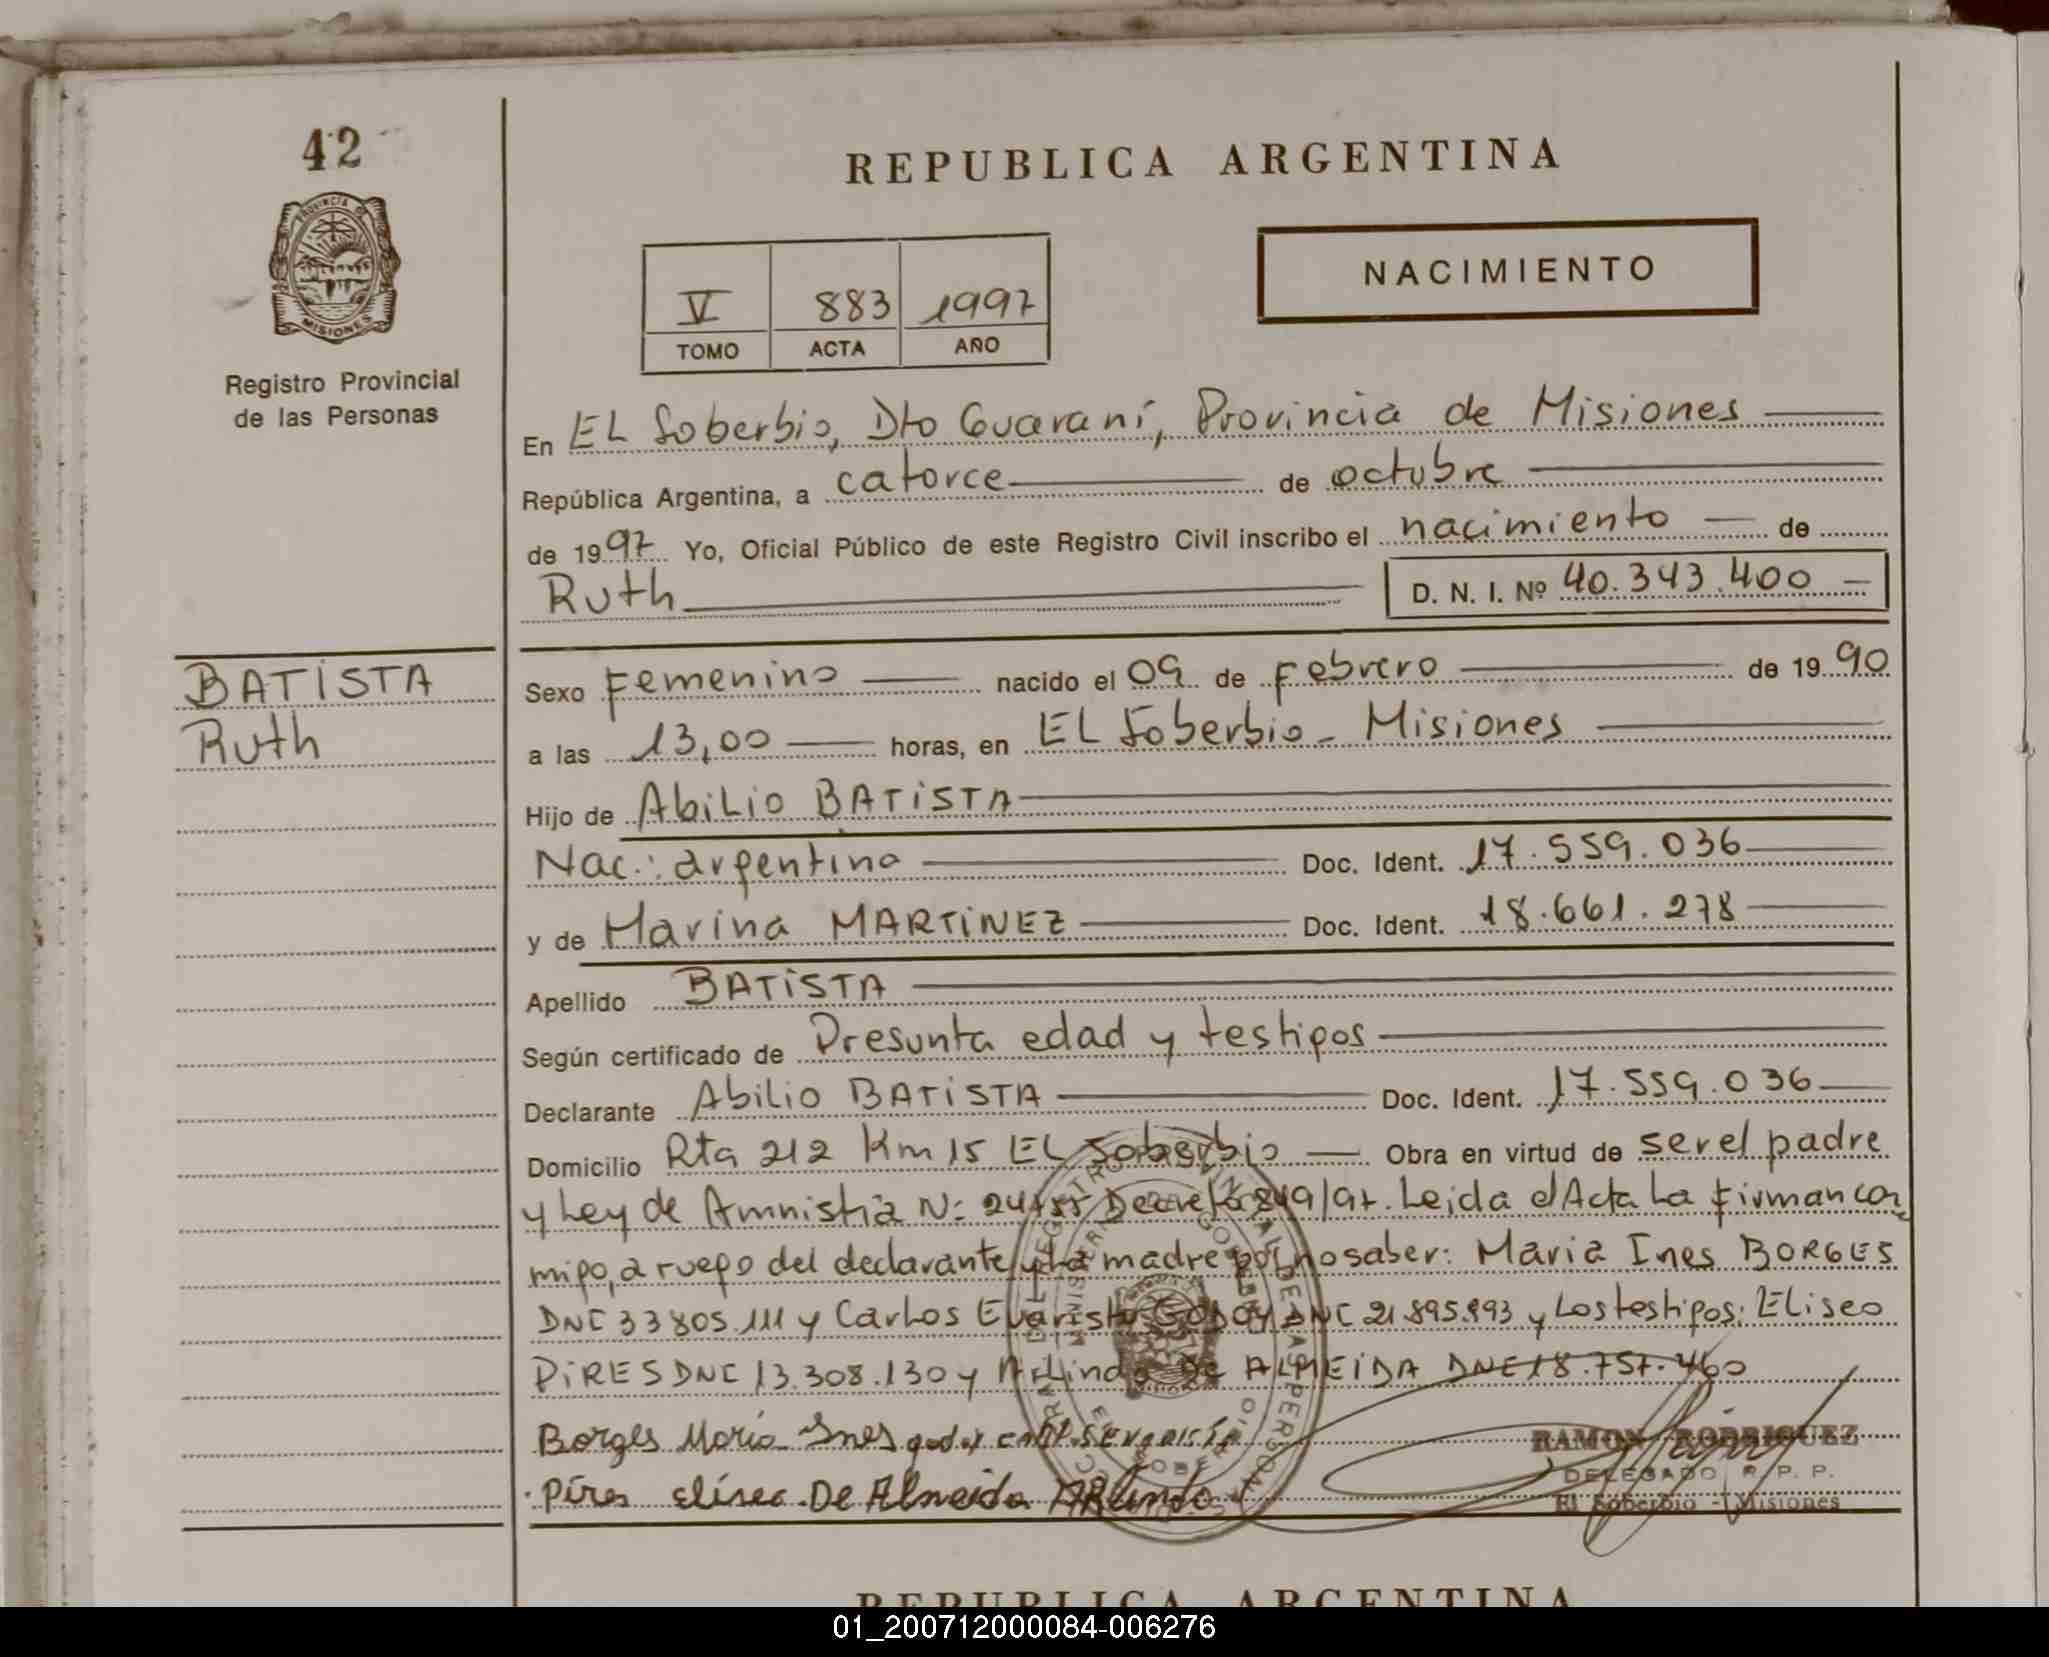 42
REPUBLICA ARGENTINA
PROVINCIA DE
MISIONES
Registro Provincial
de las Personas
NACIMIENTO
V 883 1997
TOMO ACTA AÑO
En EL Soberbio, Dto Guaraní, Provincia de Misiones
República Argentina, a catorce de octubre
de 1997 Yo, Oficial Público de este Registro Civil inscribo el nacimiento de
Ruth D. N. I. Nº 40.343.400
BATISTA
Ruth
Sexo Femenino nacido el 09 de Febrero de 1990
a las 13,00 horas, en EL Soberbio - Misiones
Hijo de Abilio BATISTA
Nac.: argentina Doc. Ident. 17.559.036
y de Marina MARTINEZ Doc. Ident. 18.661.278
Apellido BATISTA
Según certificado de Presunta edad y testigos
Declarante Abilio BATISTA Doc. Ident. 17.559.036
Domicilio Rta 212 Km 15 EL Soberbio Obra en virtud de ser el padre
y Ley de Amnistia N: Decreto 849/97. Leida el Acta La Firman con
migo, a ruego del declarante y La madre por no saber: Maria Ines BORGES
DNI 33805.111 y Carlos Evaristo GODOY DNI 21.895.893 y Los testigos: Eliseo
PIRES DNI 13.308.130 y Arlindo De ALMEIDA DNI 18.757.460
Borges Maria Ines godoy Evaristo
Pires eliseo De Almeida Arlindo
RAMON RODRIGUEZ
DELEGADO R. P. P.
El Soberbio - Misiones
REPUBLICA ARGENTINA
01_200712000084-006276